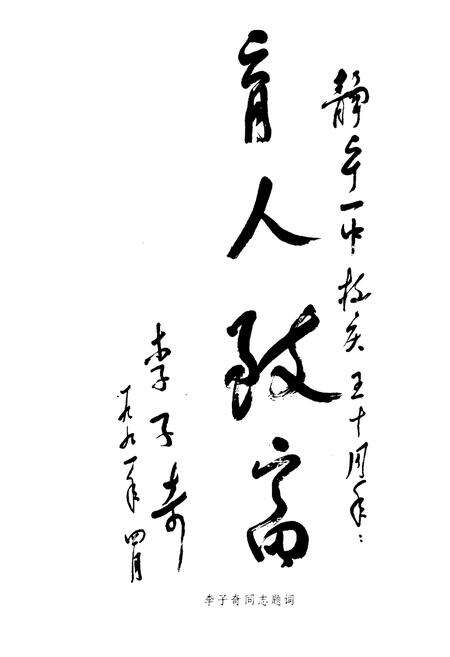 静宁一中校庆五十周年:
育人致富
李子奇
一九九一年四月
李子奇同志题词